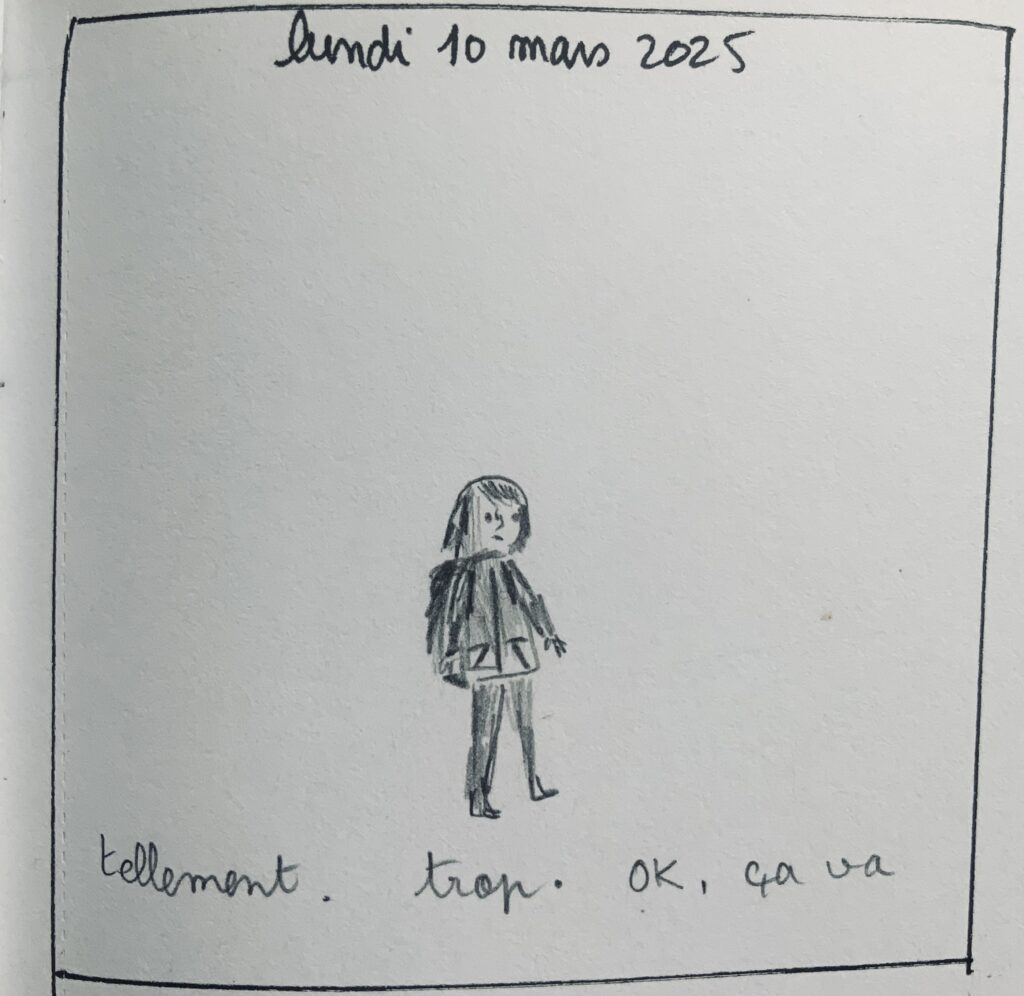 lundi 10 mars 2025
tellement. trop. OK, ça va